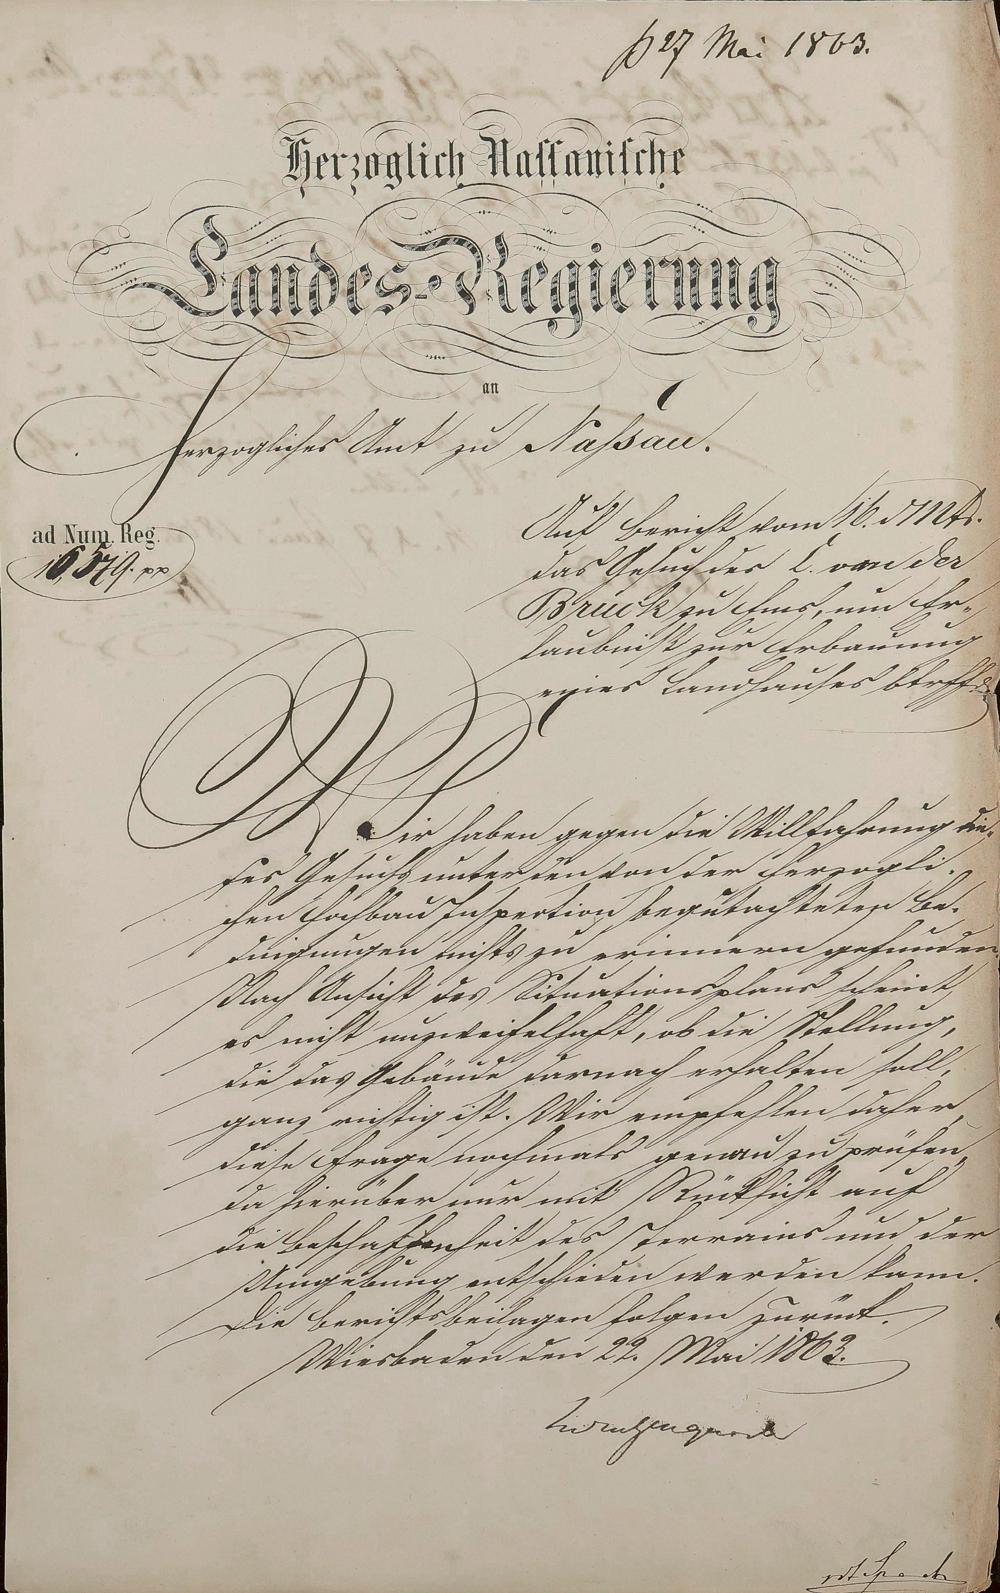 27 Mai 1863.
Herzoglich Nassauische
Landes-Regierung
an
Herzogliches Amt zu Nassau.
ad Num. Reg.
16,579. pp
Auf Bericht vom 16. d Mts.
das Gesuch des C. von der
Bruck zu Ems, um Er-
laubniß zur Erbauung
eines Landhauses btrffd.
Wir haben gegen die Willfahrung die-
ses Gesuchs unter den von der Herzogli-
chen Hochbau Inspection begutachteten Be-
dingungen nichts zu erinnern gefunden.
Nach Ansicht des Situationsplans scheint
es nicht unzweifelhaft, ob die Stellung,
die das Gebäude darnach erhalten soll,
ganz richtig ist. Wir empfehlen daher,
diese Frage nochmals genau zu prüfen,
da hierüber nur mit Rücksicht auf
die Beschaffenheit des Terrains und der
Umgebung entschieden werden kann.
Die Berichtsbeilagen folgen zurück.
Wiesbaden den 22. Mai 1863.